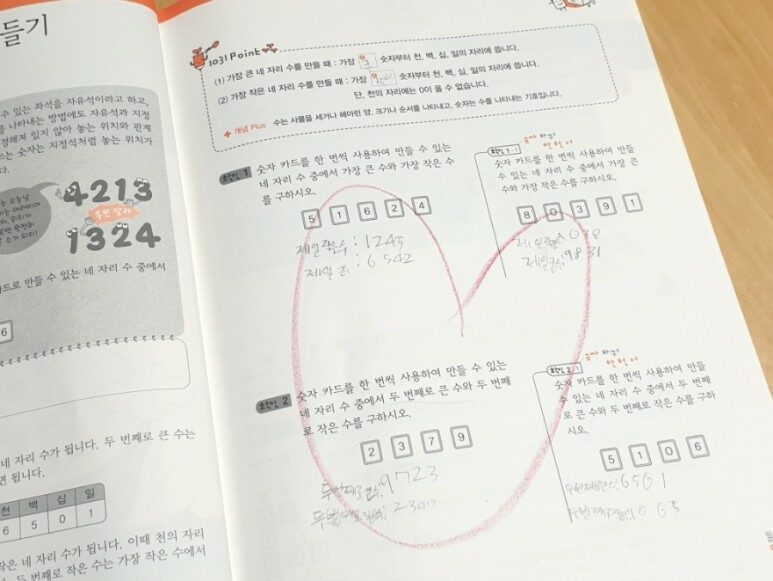 들기
수 있는 좌석을 자유석이라고 하고,
를 나타내는 방법에도 자유석과 지정
정해져 있지 않아 놓는 위치와 관계
쓰는 숫자는 지정석처럼 놓는 위치가
4213
우린 달라
1324
카드로 만들 수 있는 네 자리 수 중에서
6
네 자리 수가 됩니다. 두 번째로 큰 수는
면 됩니다.
천 백 십 일
6 5 0 1
작은 네 자리 수가 됩니다. 이때 천의 자리
두 번째로 작은 수는 가장 작은 수에서
1031 Point
(1) 가장 큰 네 자리 수를 만들 때 : 가장 숫자부터 천, 백, 십, 일의 자리에 씁니다.
(2) 가장 작은 네 자리 수를 만들 때 : 가장 숫자부터 천, 백, 십, 일의 자리에 씁니다.
단, 천의 자리에는 0이 올 수 없습니다.
개념 Plus 수는 사물을 세거나 헤아린 양, 크기나 순서를 나타내고, 숫자는 수를 나타내는 기호입니다.
확인 1 숫자 카드를 한 번씩 사용하여 만들 수 있는
네 자리 수 중에서 가장 큰 수와 가장 작은 수
를 구하시오.
5 1 6 2 4
제일 작은수 : 1245
제일 큰 : 6542
숫자 바꿔
한 번 더
확인 1-1
숫자 카드를 한 번씩 사용하여 만들
수 있는 네 자리 수 중에서 가장 큰
수와 가장 작은 수를 구하시오.
8 0 3 9 1
1038
제일큰수:9831
확인 2 숫자 카드를 한 번씩 사용하여 만들 수 있는
네 자리 수 중에서 두 번째로 큰 수와 두 번째
로 작은 수를 구하시오.
2 3 7 9
두번째로 큰수:9723
숫자 바꿔
한 번 더
확인 2-1
숫자 카드를 한 번씩 사용하여 만들
수 있는 네 자리 수 중에서 두 번째
로 큰 수와 두 번째로 작은 수를 구하
시오.
5 1 0 6
6501